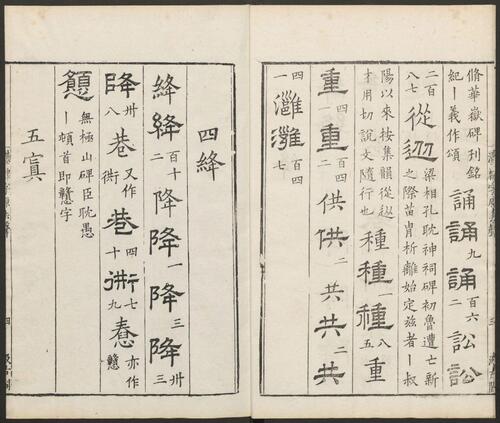 脩華嶽碑刊銘
紀丨義作頌
誦誦九誦百六二訟訟
二百八七從
梁相孔耽神祠碑初魯遭亡新
之際苗胄析離始定茲者丨叔
陽以來按集韻從
才用切說文隨行也
種種一種八五重
重一四重百四四供供二共共共二
一灉灉百四七
四絳
絳絳百十二降降一降三降卅三
降卅八巷又作衖巷四十衖七九憃亦作戇
無極山碑臣耽愚
丨頓首即戇字
五寘